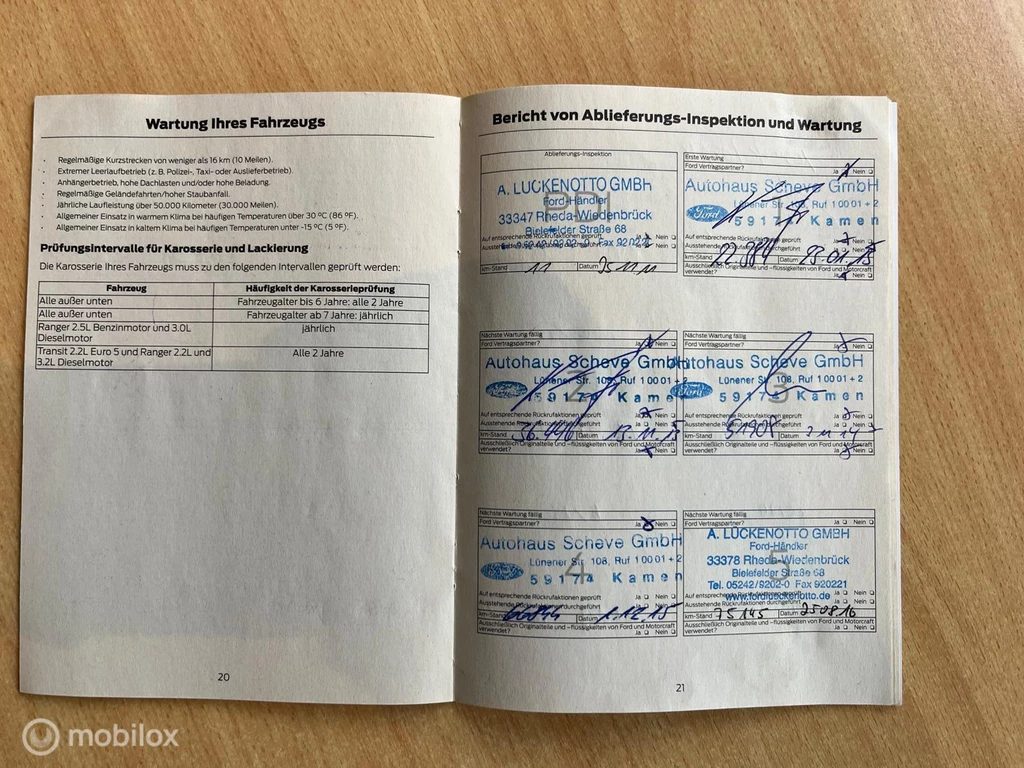 Wartung Ihres Fahrzeugs
· Regelmäßige Kurzstrecken von weniger als 16 km (10 Meilen).
· Extremer Leerlaufbetrieb (z. B. Polizei-, Taxi- oder Auslieferbetrieb).
· Anhängerbetrieb, hohe Dachlasten und/oder hohe Beladung.
· Regelmäßige Geländefahrten/hoher Staubanfall.
· Jährliche Laufleistung über 50.000 Kilometer (30.000 Meilen).
· Allgemeiner Einsatz in warmem Klima bei häufigen Temperaturen über 30 ºC (86 ºF).
· Allgemeiner Einsatz in kaltem Klima bei häufigen Temperaturen unter -15 ºC (5 ºF).
Prüfungsintervalle für Karosserie und Lackierung
Die Karosserie Ihres Fahrzeugs muss zu den folgenden Intervallen geprüft werden:
Fahrzeug Häufigkeit der Karosserieprüfung
Alle außer unten Fahrzeugalter bis 6 Jahre: alle 2 Jahre
Alle außer unten Fahrzeugalter ab 7 Jahre: jährlich
Ranger 2.5L Benzinmotor und 3.0L jährlich
Dieselmotor
Transit 2.2L Euro 5 und Ranger 2.2L und Alle 2 Jahre
3.2L Dieselmotor
20
Bericht von Ablieferungs-Inspektion und Wartung
Ablieferungs-Inspektion
PDI
A. LÜCKENOTTO GMBH
Ford-Händler
33347 Rheda-Wiedenbrück
Bielefelder Straße 68
Auf entsprechende Rückrufaktionen geprüft Ja Nein
Ja Nein
km-Stand 11 Datum
Erste Wartung
Ford Vertragspartner? Ja Nein
Autohaus Scheve GmbH
Ford
Lünener Str. 108, Ruf 1 00 01 + 2
59174 Kamen
Auf entsprechende Rückrufaktionen geprüft Ja Nein
Ausstehende Rückrufaktionen durchgeführt Ja Nein
km-Stand 22.984 Datum 23.01.13
Ausschließlich Originalteile und -flüssigkeiten von Ford und Motorcraft
verwendet? Ja Nein
Nächste Wartung fällig
Ford Vertragspartner? Ja Nein
2
Autohaus Scheve GmbH
Ford
Lünener Str. 108, Ruf 1 00 01 + 2
59174 Kamen
Auf entsprechende Rückrufaktionen geprüft Ja Nein
Ausstehende Rückrufaktionen durchgeführt Ja Nein
km-Stand 36.996 Datum 13.11.13
Ausschließlich Originalteile und -flüssigkeiten von Ford und Motorcraft
verwendet? Ja Nein
Nächste Wartung fällig
Ford Vertragspartner? Ja Nein
3
Autohaus Scheve GmbH
Ford
Lünener Str. 108, Ruf 1 00 01 + 2
59174 Kamen
Auf entsprechende Rückrufaktionen geprüft Ja Nein
Ausstehende Rückrufaktionen durchgeführt Ja Nein
km-Stand 51908 Datum
Ausschließlich Originalteile und -flüssigkeiten von Ford und Motorcraft
verwendet? Ja Nein
Nächste Wartung fällig
Ford Vertragspartner? Ja Nein
4
Autohaus Scheve GmbH
Ford
Lünener Str. 108, Ruf 1 00 01 + 2
59174 Kamen
Auf entsprechende Rückrufaktionen geprüft Ja Nein
Ausstehende Rückrufaktionen durchgeführt Ja Nein
km-Stand Datum 1.12.15
Ausschließlich Originalteile und -flüssigkeiten von Ford und Motorcraft
verwendet? Ja Nein
Nächste Wartung fällig
Ford Vertragspartner? Ja Nein
5
A. LÜCKENOTTO GMBH
Ford-Händler
33378 Rheda-Wiedenbrück
Bielefelder Straße 68
Tel. 05242/9202-0 Fax 920221
www.fordlueckenotto.de
Auf entsprechende Rückrufaktionen geprüft Ja Nein
Ausstehende Rückrufaktionen durchgeführt Ja Nein
km-Stand 75145 Datum 250816
Ausschließlich Originalteile und -flüssigkeiten von Ford und Motorcraft
verwendet? Ja Nein
21
mobilox